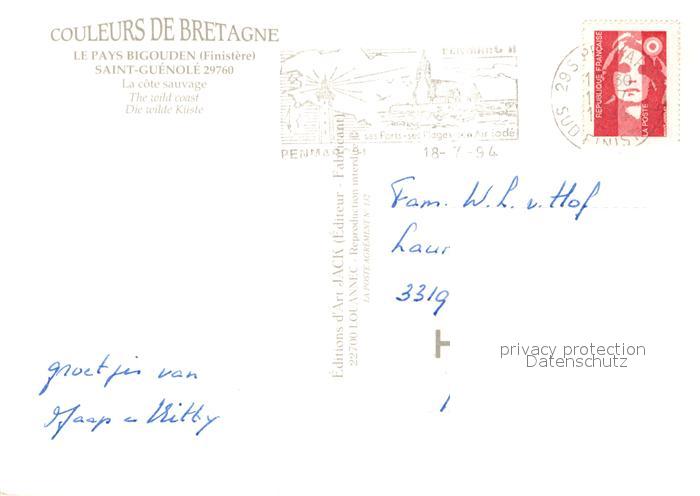 COULEURS DE BRETAGNE
LE PAYS BIGOUDEN (Finistère)
SAINT-GUÉNOLÉ 29760
La côte sauvage
The wild coast
Die wilde Küste
ses Ports-ses Plages
18-7-94
RÉPUBLIQUE FRANÇAISE
LA POSTE
Éditions d'Art JACK (Éditeur - Fabricant)
22700 LOUANNEC - Reproduction interdite
LA POSTE AGRÉMENT N° 132
Fam. W. L. v. Hof
Laur
3319
H
privacy protection
Datenschutz
groetjes van
Jaap en Kitty